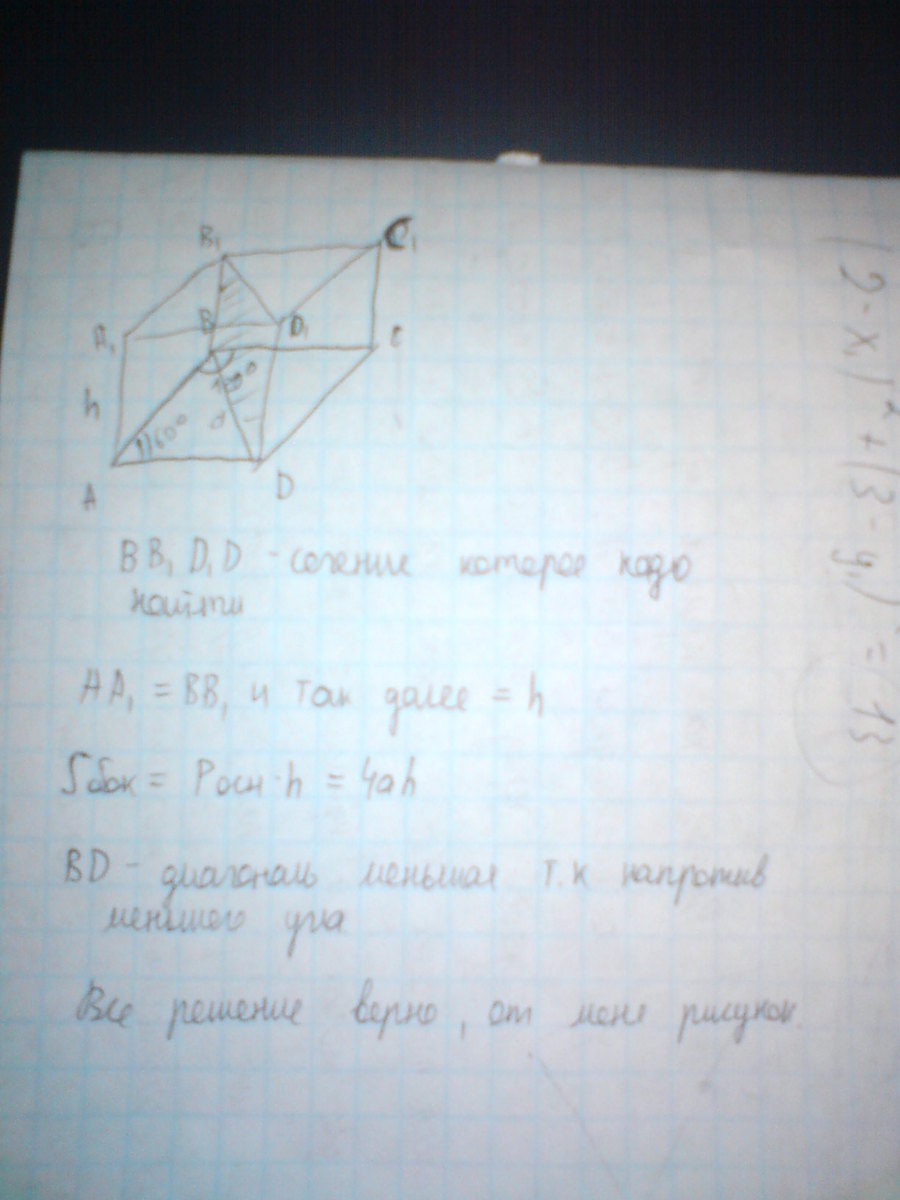 B₁
C₁
A₁
B
D₁
C
h
120°
60°
d
A
D
BB₁D₁D - сечение которое надо
найти
AA₁ = BB₁ и так далее = h
Sбок = Pосн · h = 4ah
BD - диагональ меньшая т.к напротив
меньшего угла
Все решение верно, от меня рисунок.
(2-x₁)² + (3-y₁)² = 13